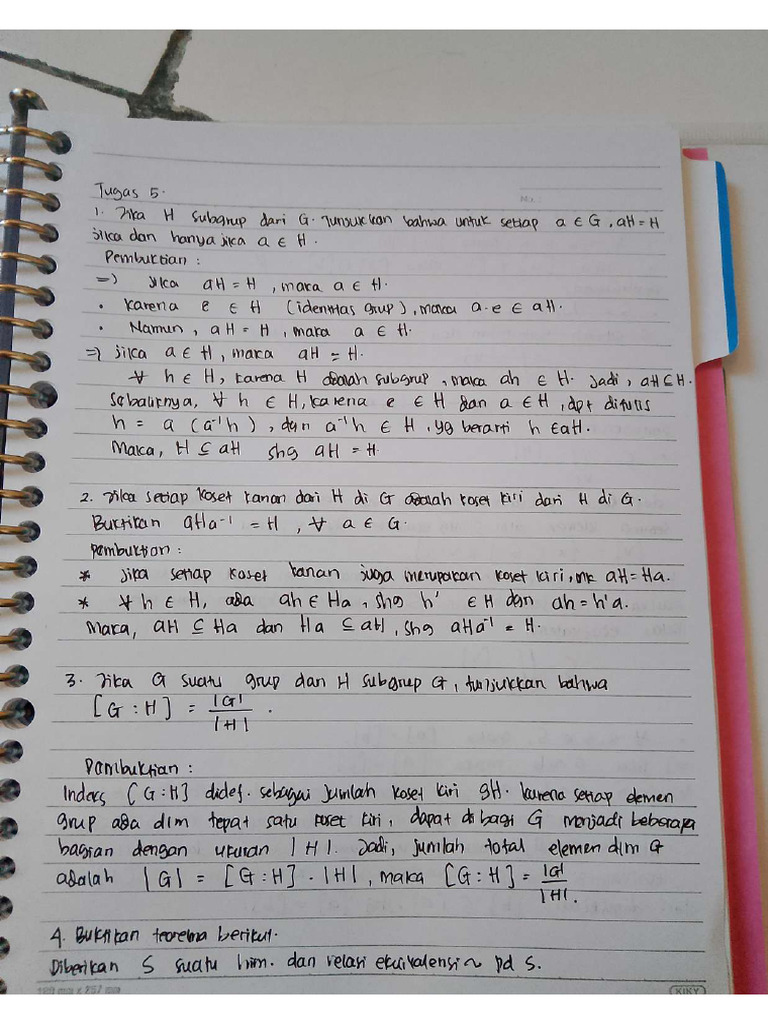 No.:
Tugas 5.
1. Jika H subgrup dari G. Tunjukkan bahwa untuk setiap a ∈ G, aH = H
jika dan hanya jika a ∈ H.
Pembuktian :
=) Jika aH = H, maka a ∈ H.
• Karena e ∈ H (identitas grup), maka a·e ∈ aH.
• Namun, aH = H, maka a ∈ H.
=) jika a ∈ H, maka aH = H.
∀ h ∈ H, karena H adalah subgrup, maka ah ∈ H. Jadi, aH ⊆ H.
Sebaliknya, ∀ h ∈ H, karena e ∈ H dan a ∈ H, dpt ditulis
h = a (a⁻¹h), dan a⁻¹h ∈ H, yg berarti h ∈ aH.
Maka, H ⊆ aH shg aH = H.
2. Jika setiap koset kanan dari H di G adalah koset kiri dari H di G.
Buktikan aHa⁻¹ = H, ∀ a ∈ G.
Pembuktian :
* Jika setiap koset kanan juga merupakan koset kiri, mk aH = Ha.
* ∀ h ∈ H, ada ah ∈ Ha, shg h' ∈ H dan ah = h'a.
Maka, aH ⊆ Ha dan Ha ⊆ aH, shg aHa⁻¹ = H.
3. Jika G suatu grup dan H subgrup G, tunjukkan bahwa
[G : H] = |G| / |H| .
Pembuktian :
Indeks [G : H] didef. sebagai jumlah koset kiri gH. Karena setiap elemen
grup ada dlm tepat satu koset kiri, dapat dibagi G menjadi beberapa
bagian dengan ukuran |H|. Jadi, jumlah total elemen dlm G
adalah |G| = [G : H] · |H|, maka [G : H] = |G| / |H|.
4. Buktikan teorema berikut.
Diberikan S suatu him. dan relasi ekuivalensi ~ pd S.
189 mm x 257 mm
KIKY